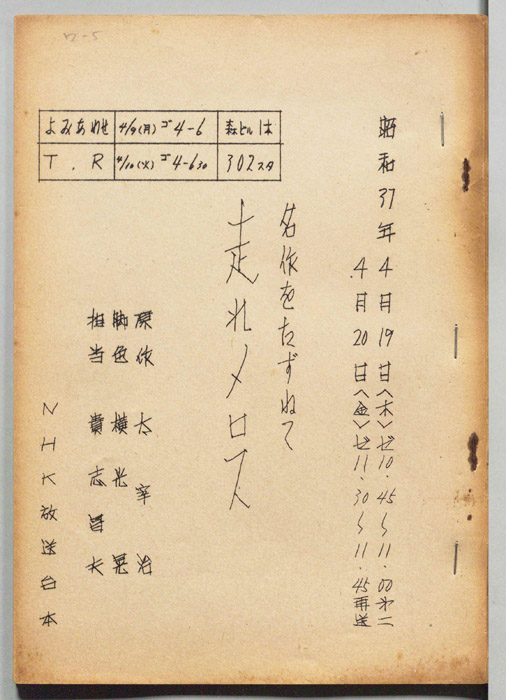 12-5
よみあわせ 4/9(月) ゴ4-6 森ビル1ホ
T.R 4/10(火) ゴ4-6 30 302スタ
昭和37年4月19日〈木〉ゼ10.45〜11.00 オ二
4月20日〈金〉ゼ11.30〜11.45再送
名作をたずねて
走れメロス
原作 太宰 治
脚色 横光 晃
担当 貴志昌夫
NHK放送台本